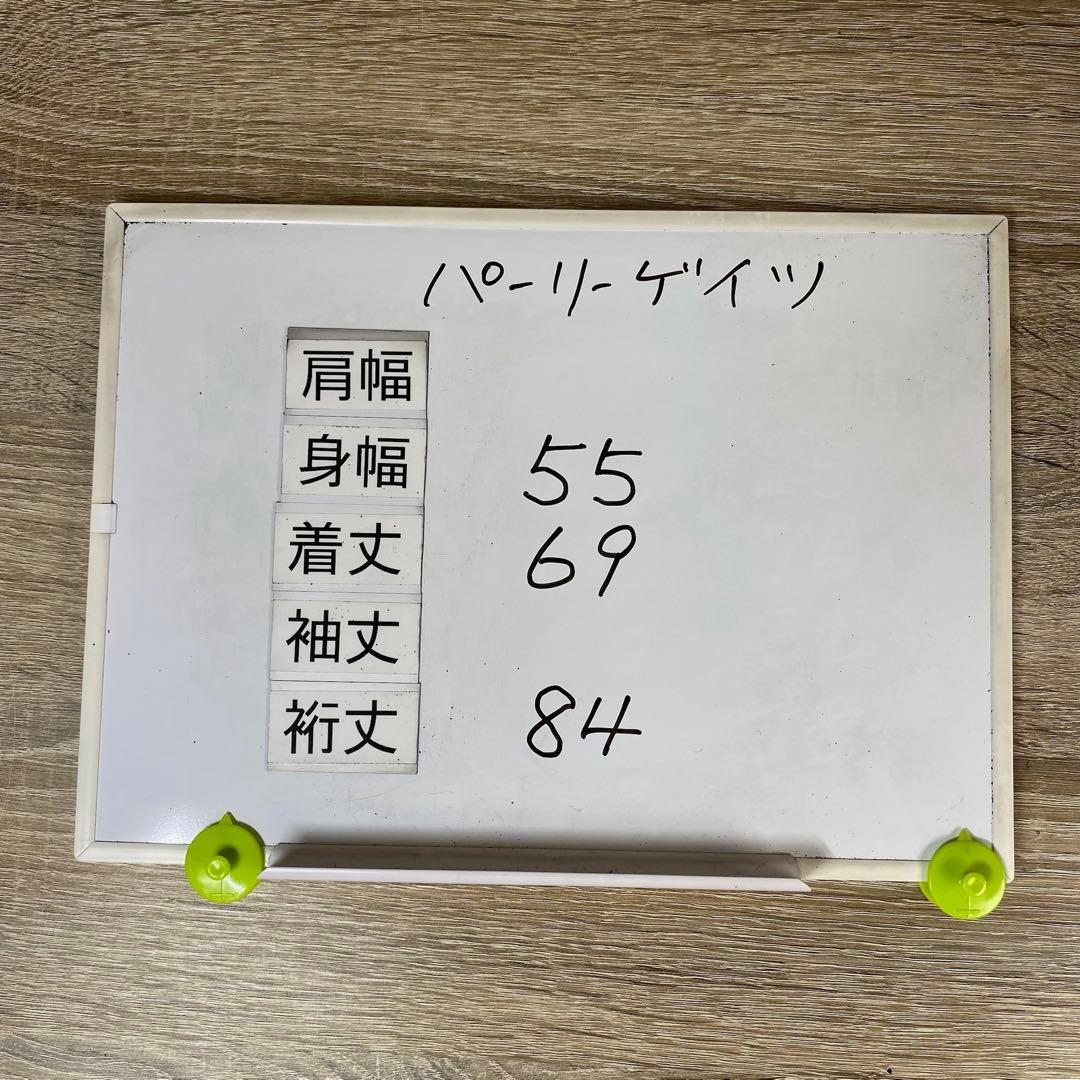 パーリーゲイツ
肩幅
身幅 55
着丈 69
袖丈
裄丈 84